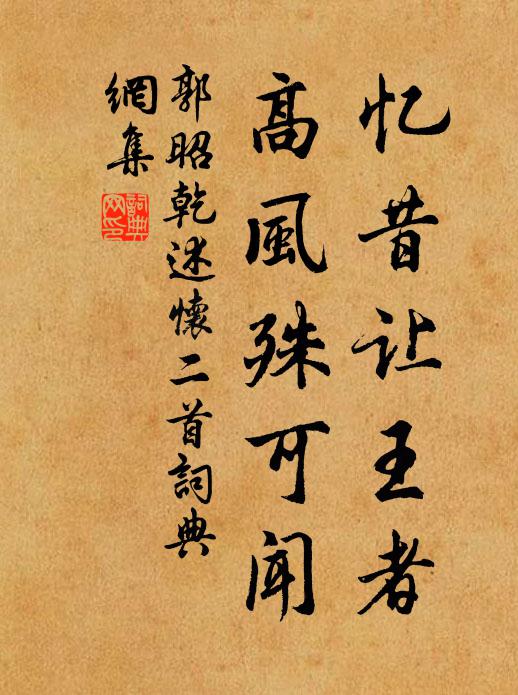 忆昔让王者
高風殊可闻
郭昭乾述懷二首詞典
網集
詞典网印